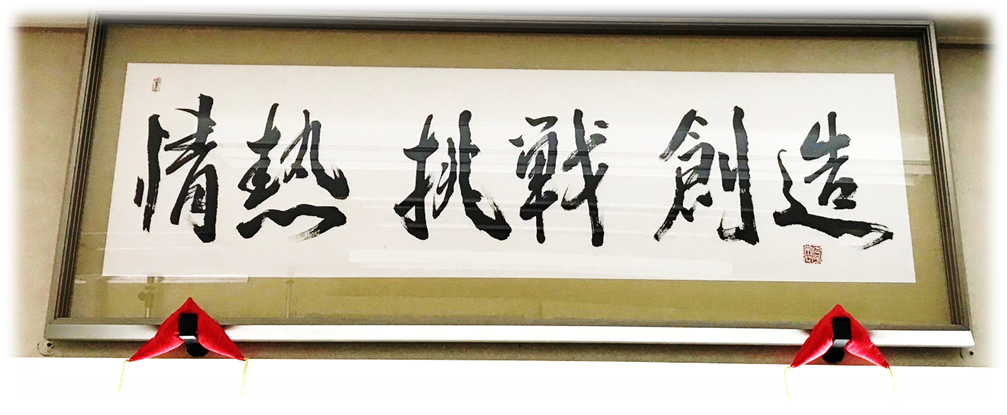 情熱 挑戦 創造